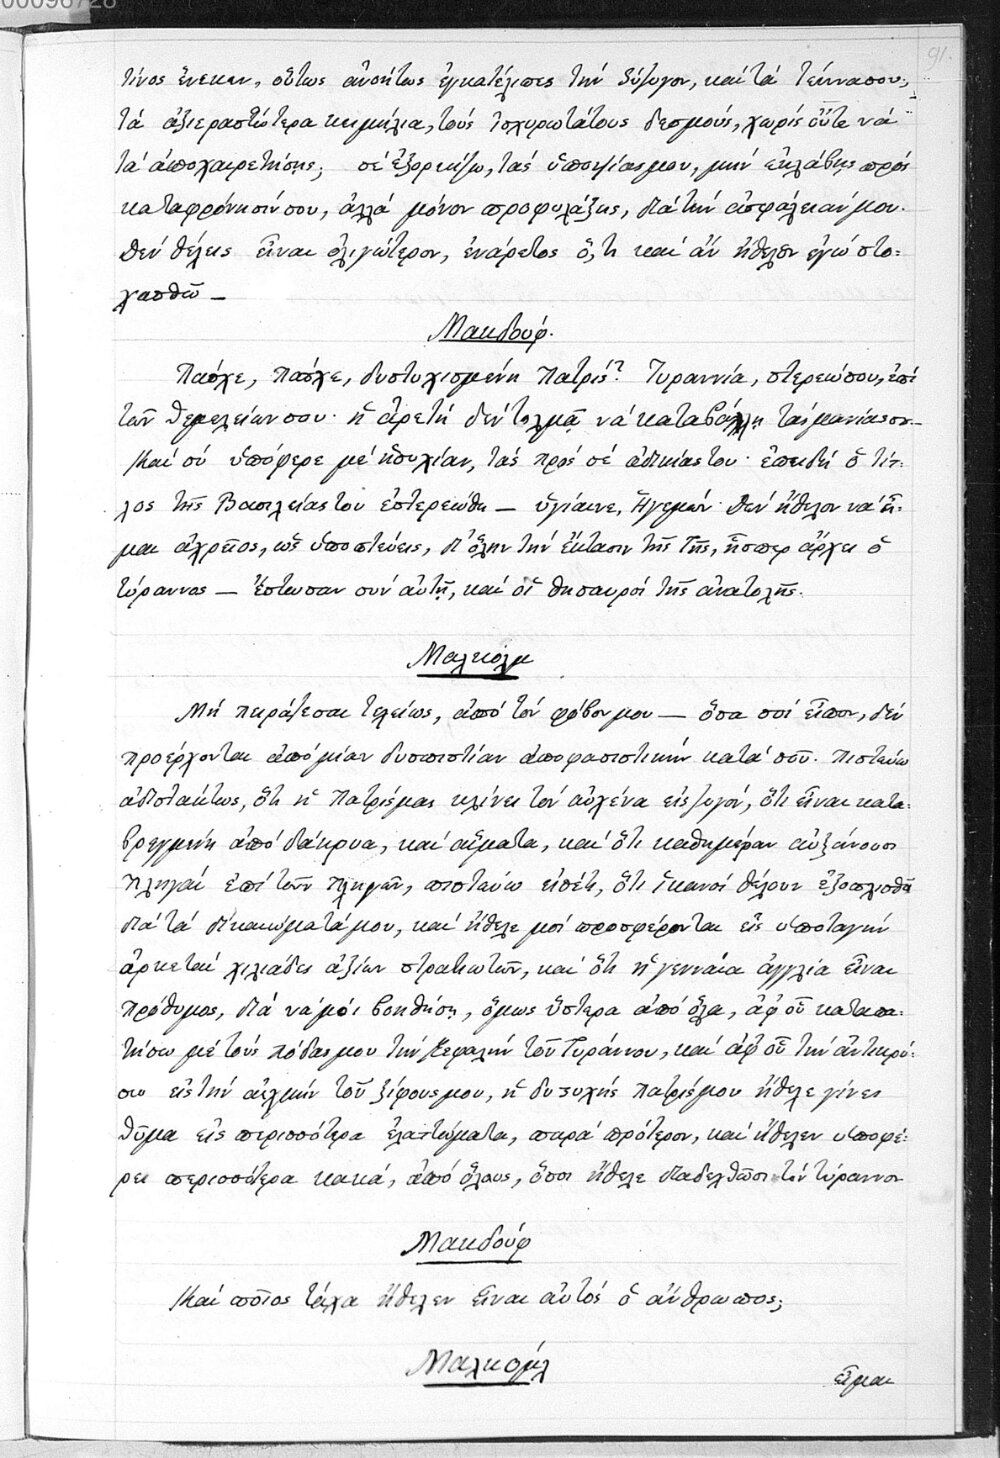 00096728
91.
τίνος ἕνεκεν, οὕτως ἀνοήτως ἐγκατέλιπες τὴν σύζυγον, καὶ τὰ τέκνα σου,
τὰ ἀξιεραστώτερα κειμήλια, τοὺς ἰσχυρωτάτους δεσμούς, χωρὶς οὔτε νὰ
τὰ ἀποχαιρετήσῃς; σὲ ἐξορκίζω, τὰς ὑποψίας μου, μὴν ἐκλάβῃς πρὸς
καταφρόνησίν σου, ἀλλὰ μόνον προφυλάξεις, διὰ τὴν ἀσφάλειάν μου.
Δὲν θέλεις εἶναι ὀλιγώτερον, ἐνάρετος ὅ,τι καὶ ἂν ἤθελον ἐγὼ στο-
χασθῶ —
Μακδούφ.
Πάσχε, πάσχε, δυστυχισμένη Πατρίς! Τυραννία, στερεώσου, ἐπὶ
τῶν θεμελείων σου· ἡ ἀρετὴ δὲν τολμᾷ νὰ καταβάλλῃ τὰς μανίας σου —
Καὶ σὺ ὑπόφερε μὲ ἡσυχίαν, τὰς πρὸς σὲ ἀδικίας του· ἐπειδὴ ὁ τίτ-
λος τῆς Βασιλείας του ἐστερεώθη — ὑγίαινε, Ἡγεμών· Δὲν ἤθελον νὰ εἶ-
μαι ἀχρεῖος, ὡς ὑποπτεύεις, δι' ὅλην τὴν ἔκτασιν τῆς Γῆς, ἧσπερ ἄρχει ὁ
τύραννος — Ἔστωσαν σὺν αὐτῇ, καὶ οἱ θησαυροὶ τῆς ἀνατολῆς.
Μαλκολμ
Μὴ πειράζεσαι τελείως, ἀπὸ τὸν φόβον μου — ὅσα σοὶ εἶπον, δὲν
προέρχονται ἀπὸ μίαν δυσπιστίαν ἀποφασιστικὴν κατὰ σοῦ. Πιστεύω
ἀδιστάκτως, ὅτι ἡ Πατρίς μας κλίνει τὸν αὐχένα εἰς ζυγόν, ὅτι εἶναι κατα-
βρεγμένη ἀπὸ δάκρυα, καὶ αἵματα, καὶ ὅτι καθημέραν αὐξάνουσι
πληγαὶ ἐπὶ τῶν πληγῶν, πιστεύω εἰσέτι, ὅτι ἱκανοὶ θέλουν ἐξοπλισθῆ
διὰ τὰ δικαιώματά μου, καὶ ἤθελε μοὶ προσφέρονται εἰς ὑποταγὴν
ἀρκεταὶ χιλιάδες ἀξίων στρατιωτῶν, καὶ ὅτι ἡ γενναία ἀγγλία εἶναι
πρόθυμος, διὰ νὰ μοὶ βοηθήσῃ, ὅμως ὕστερα ἀπὸ ὅλα, ἀφ' οὗ καταπα-
τήσω μὲ τοὺς πόδας μου τὴν κεφαλὴν τοῦ Τυράννου, καὶ ἀφ' οὗ τὴν ἀντικρύ-
σω εἰς τὴν αἰχμὴν τοῦ ξίφους μου, ἡ δυστυχὴς πατρίς μου ἤθελε γίνει
θῦμα εἰς περισσότερα ἐλαττώματα, παρὰ πρότερον, καὶ ἤθελεν ὑποφέ-
ρει περισσότερα κακά, ἀπὸ ὅλους, ὅσοι ἤθελε διαδεχθῶσι τὸν τύραννον
Μακδούφ
Καὶ ποῖος τάχα ἤθελεν εἶναι αὐτὸς ὁ ἄνθρωπος;
Μαλκολμ
εἶμαι